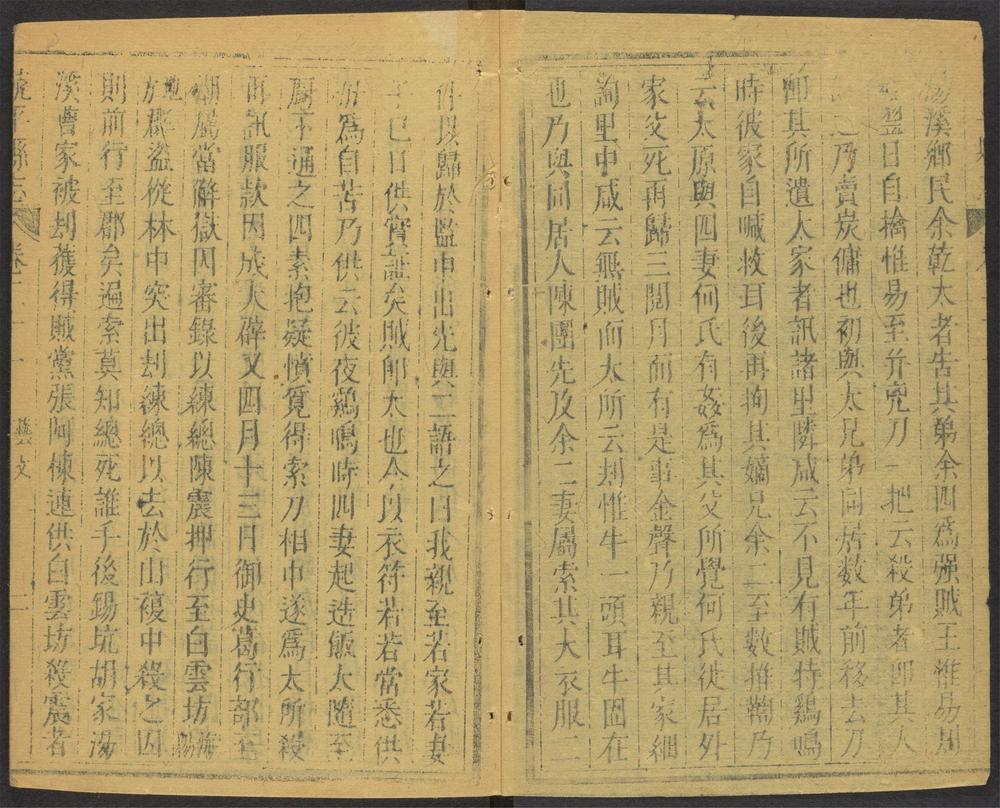 湯溪鄉民余乾太者告其弟余四爲强賊王惟易刃
翌日自擒惟易至并兇刀一把云殺弟者卽其人
乃賣炭傭也初與太兄弟同居数年前移去刀
卽其所遺太家者訊諸里隣咸云不見有賊特鷄鳴
時彼家自喊救耳後再拘其嫡兄余二至数推鞫乃
云太原與四妻何氏有姦爲其父所覺何氏徙居外
家父死再歸三閱月而有是事金聲乃親至其家細
詢里中咸云無賊而太所云刦惟牛一頭耳牛固在
也乃與同居人陳團先及余二妻屬索其大衣服二
以歸於監中出先與二語之曰我親至若家若妻
已曰供實証矣賊卽太也今以衣符若若當悉供
爲自苦乃供云彼夜鷄鳴時四妻起造飯太隨至
厨下通之四素抱疑憤覔得索刀相中遂爲太所殺
再訊服款因成大辟又四月十三日御史葛行部至
潮屬當觧獄囚審錄以練總陳震押行至白雲坊海陽
地於郡盜從林中突出刦練總以去於山複中殺之囚
則前行至郡矣遍索莫知總死誰手後錫坑胡家湯
溪曹家被刦獲得賊黨張阿棟連供白雲坊殺震者
饒平縣志
藝文